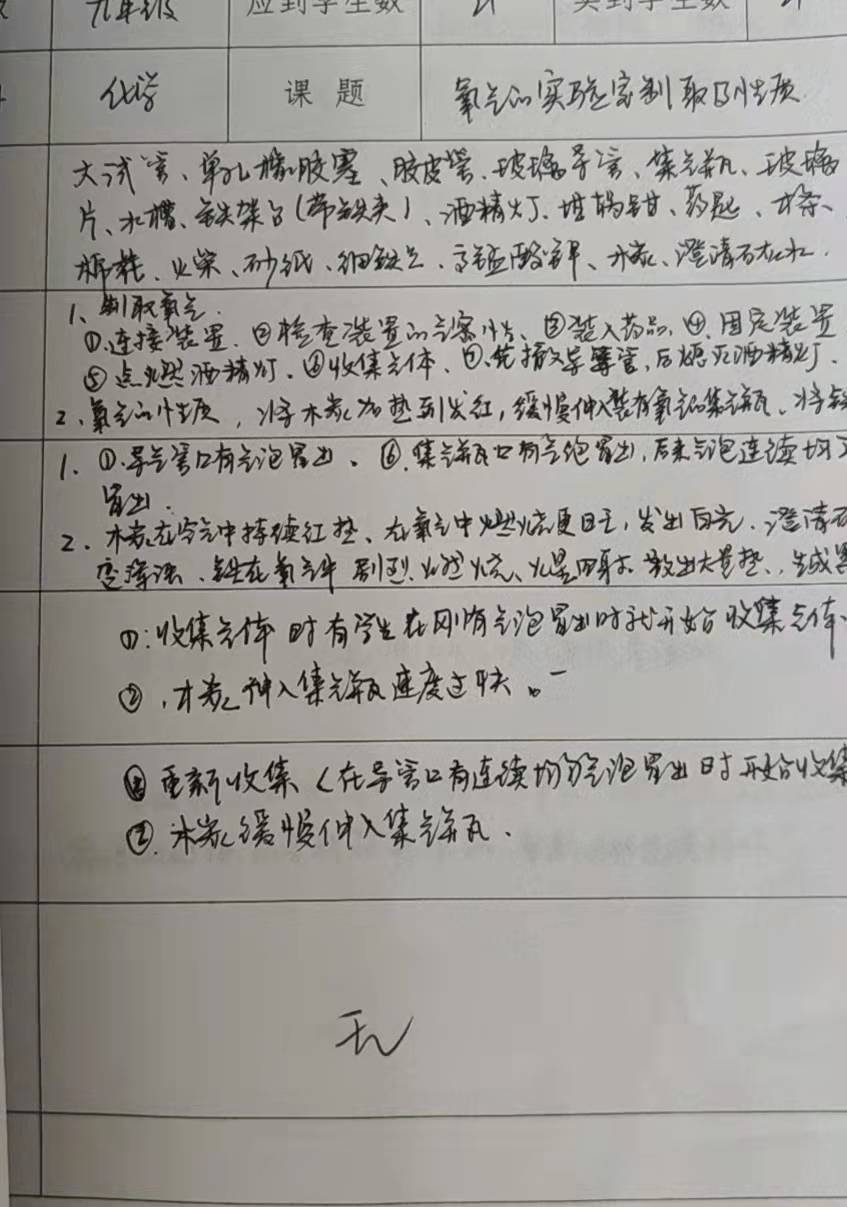 九年级 应到学生数 21 实到学生数 21
化学 课题 氧气的实验室制取与性质
大试管、单孔橡胶塞、胶皮管、玻璃导管、集气瓶、玻璃
片、水槽、铁架台(带铁夹)、酒精灯、坩埚钳、药匙、木条、
棉花、火柴、砂纸、细铁丝、高锰酸钾、木炭、澄清石灰水.
1、制取氧气.
①.连接装置.②检查装置的气密性、③装入药品,④.固定装置
⑤点燃酒精灯.⑥收集气体、⑦.先撤导管,后熄灭酒精灯.
2、氧气的性质,将木炭加热到发红,缓慢伸入装有氧气的集气瓶、将
1、①.导气管口有气泡冒出。⑥.集气瓶口有气泡冒出,后来气泡连续均匀
冒出.
2、木炭在空气中持续红热、在氧气中燃烧更旺,发出白光.澄清石
变浑浊、铁在氧气中剧烈燃烧、火星四射、放出大量热、生成黑
①:收集气体时有学生在刚有气泡冒出时就开始收集气体.
②,木炭伸入集气瓶速度过快。
①重新收集(在导管口有连续均匀气泡冒出时开始收集
②.木炭缓慢伸入集气瓶.
无